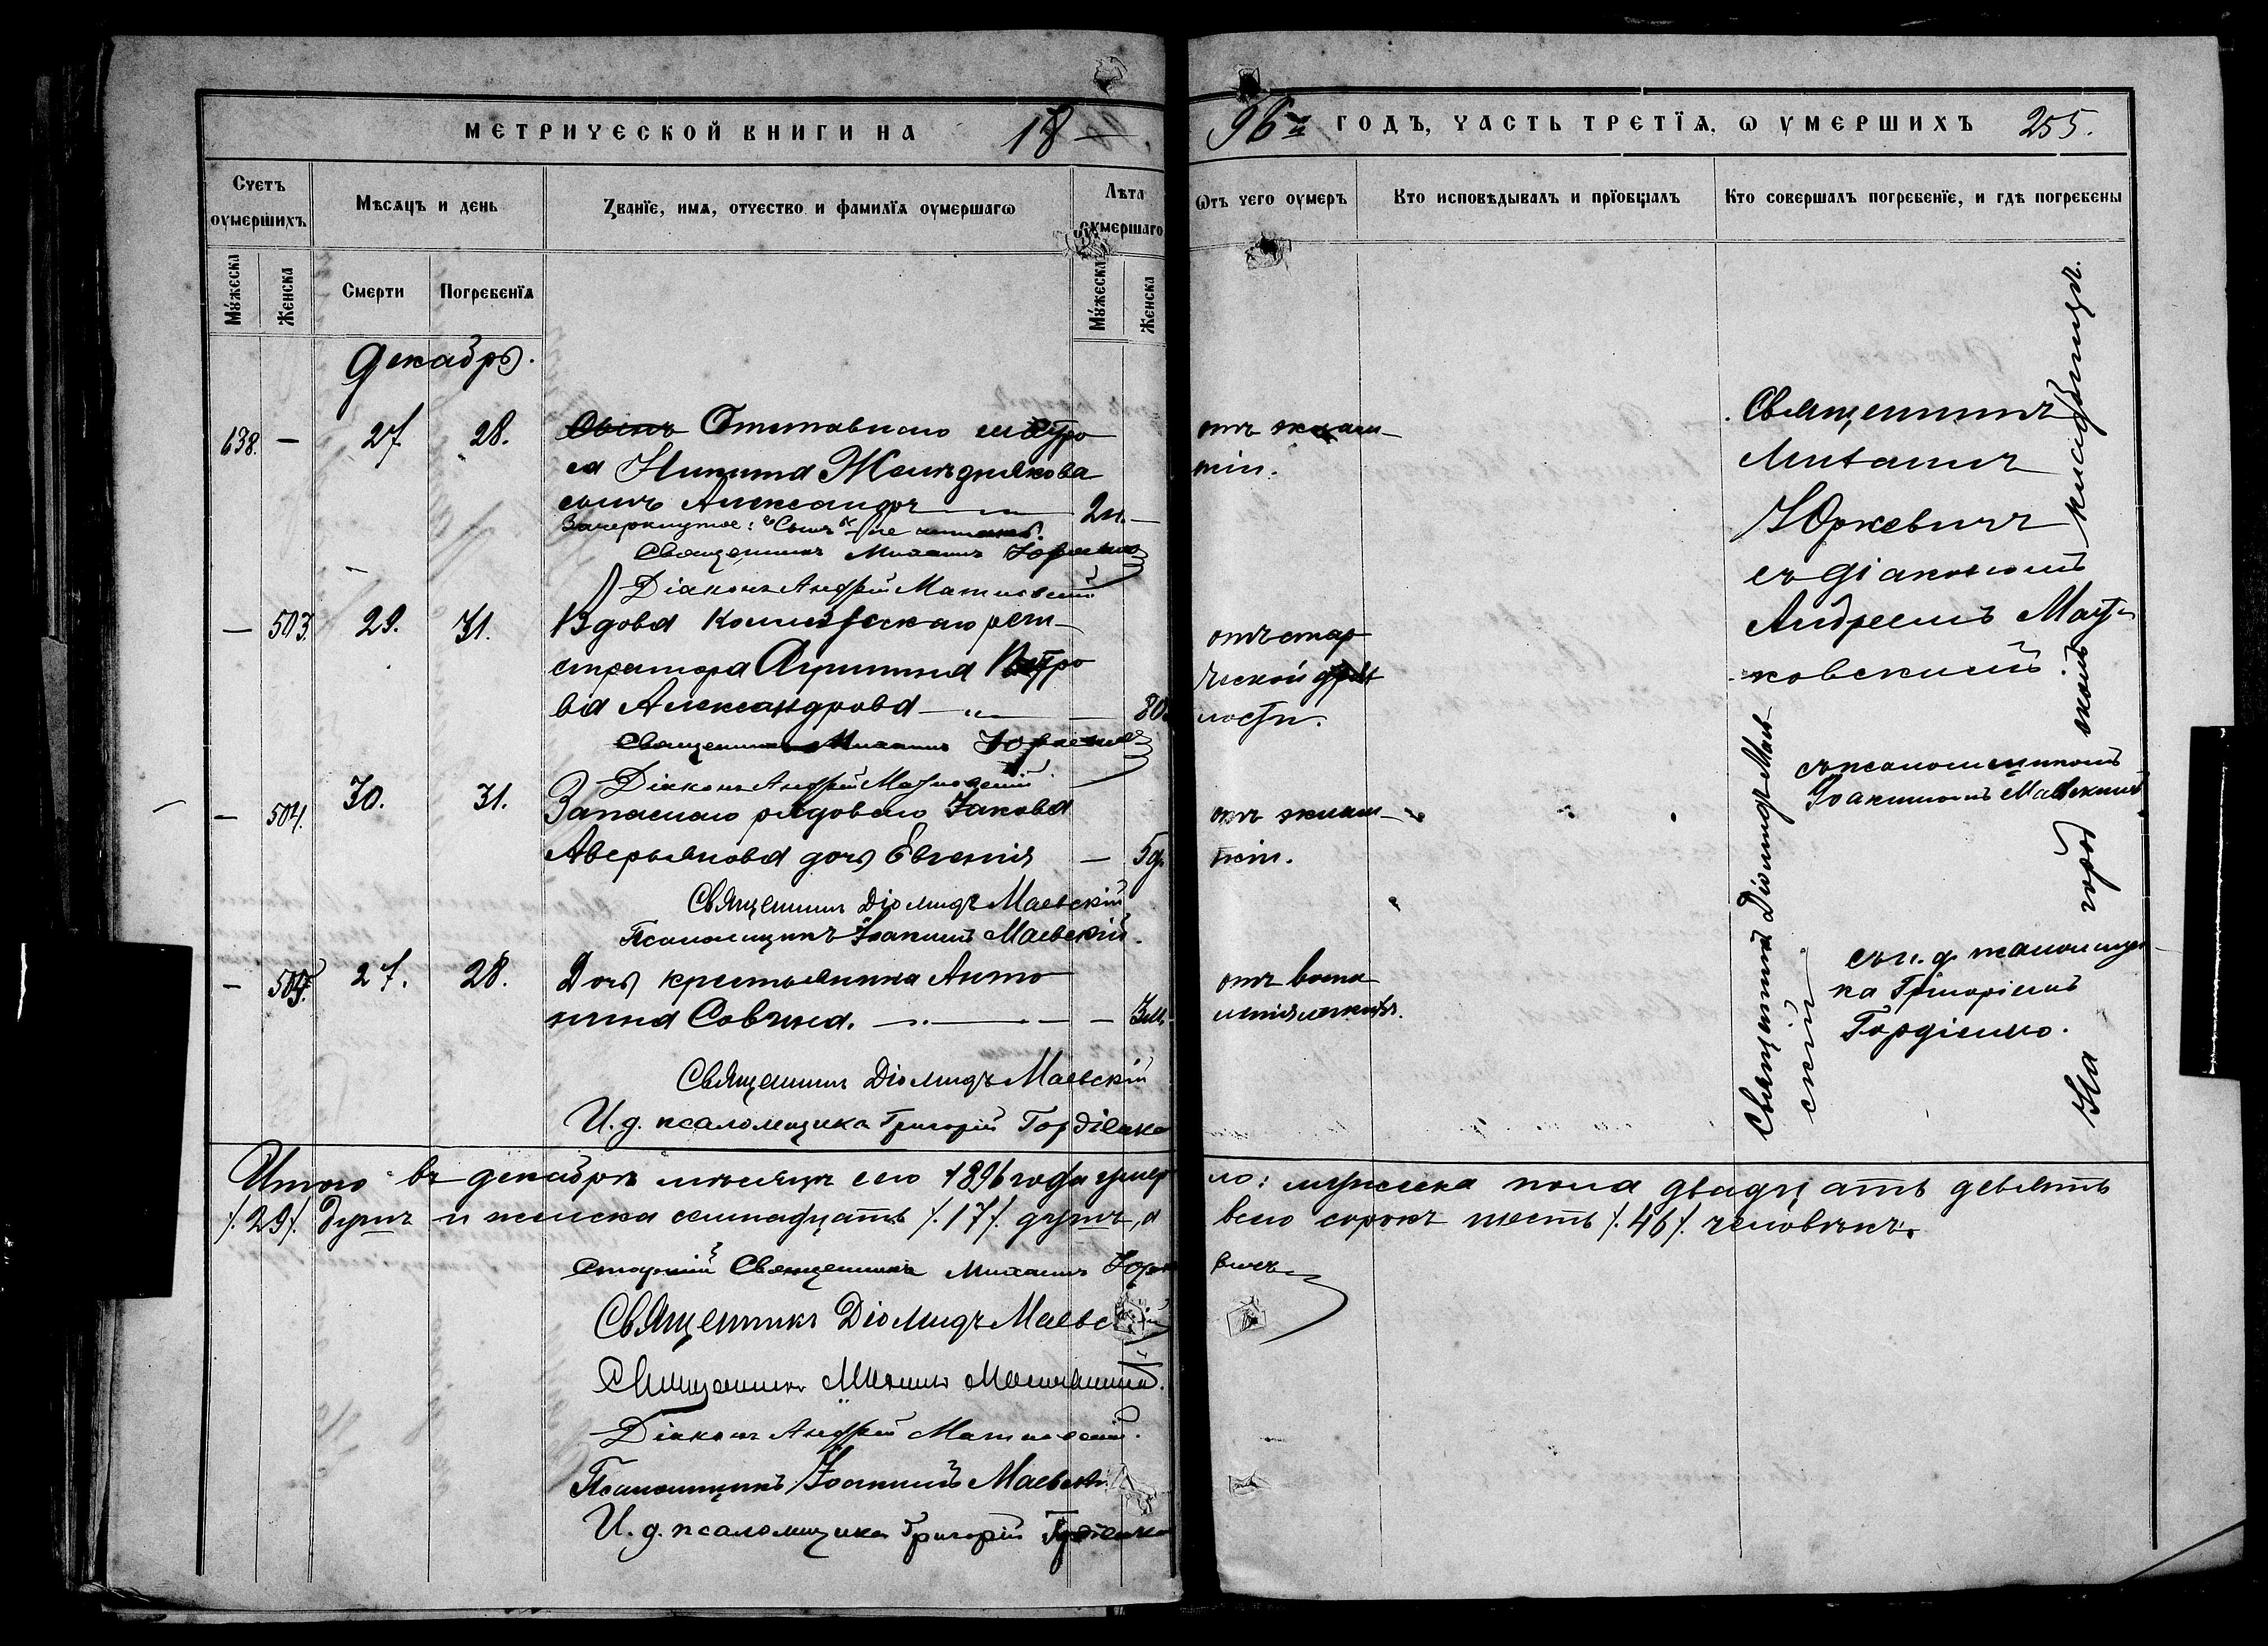 МЕТРИЧЕСКОЙ КНИГИ НА 18
96й ГОДЪ, ЧАСТЬ ТРЕТІѦ, Ѡ УМЕРШИХЪ 255.
Счетъ оумершихъ.
Мѣсяцъ и день
Званїе, имѧ, отчество и фамилїѧ оумершагѡ
Лѣта оумершаго
Ѿъ чего оумеръ
Кто исповѣдывалъ и прїобщалъ
Кто совершалъ погребенїе, и гдѣ погребены
Мꙋжеска
Женска
Смерти
Погребенїѧ
Мꙋжеска
Женска
Декабрь.
638. — 27 28.
Сынъ Отставного матро
са Никита Желѣзнякова
сынъ Александръ 2н. —
Зачеркнутое: "Сынъ" не читать.
Священникъ Михаилъ Юркевичъ
Діаконъ Андрей Матковскій
отъ эклам-
псіи.
Священникъ
Михаилъ
Юркевичъ
съ діакономъ
Андреемъ Мат-
ковскимъ
— 503. 29. 31.
Вдова коллежскаго реги-
стратора Агрипина Петро
ва Александрова — 80.
Священникъ Михаилъ Юркевичъ
Діаконъ Андрей Матковскій
отъ стар
ческой дрях
лости.
— 504. 30. 31.
Запаснаго рядоваго Іакова
Аверьянова дочь Евгенія — 5д.
Священникъ Діомидъ Маевскій
Псаломщикъ Іоакимъ Маевскій.
отъ эклам-
псіи.
Священникъ Діомидъ Маев-
скій
съ псаломщикомъ
Іоакимомъ Маевскимъ
— 505. 27. 28.
Дочь крестьянина Анто
нина Совчина. — 3м.
Священникъ Діомидъ Маевскій
И. д. псаломщика Григорій Гордіенко
отъ воспа
ленія легкихъ.
съ и. д. псаломщи-
ка Григоріемъ
Гордіенко.
На городскомъ кладбищѣ.
Итого въ декабрѣ мѣсяцѣ сего 1896 года умер
ло: мужеска пола двадцать девять
/.29/. душъ и женска семнадцать /.17/. душъ, а
всего сорокъ шесть /.46/. человѣкъ.
Старшій Священникъ Михаилъ Юрке
вичъ
Священникъ Діомидъ Маевскій
Священникъ Михаилъ
Діаконъ Андрей Матковскій.
Псаломщикъ Іоакимъ Маевскій
И. д. псаломщика Григорій Гордіенко